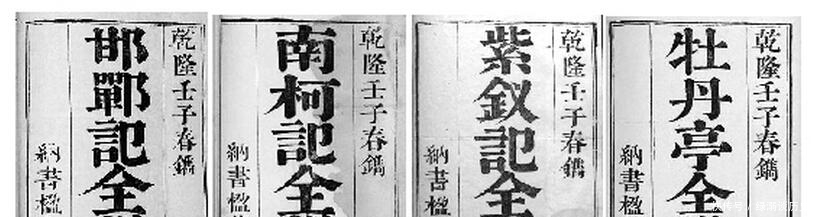 乾隆壬子春鐫
牡丹亭全
納書楹
乾隆壬子春鐫
紫釵記全
納書楹
乾隆壬子春鐫
南柯記全
納書楹
乾隆壬子春鐫
邯鄲記全
納書楹